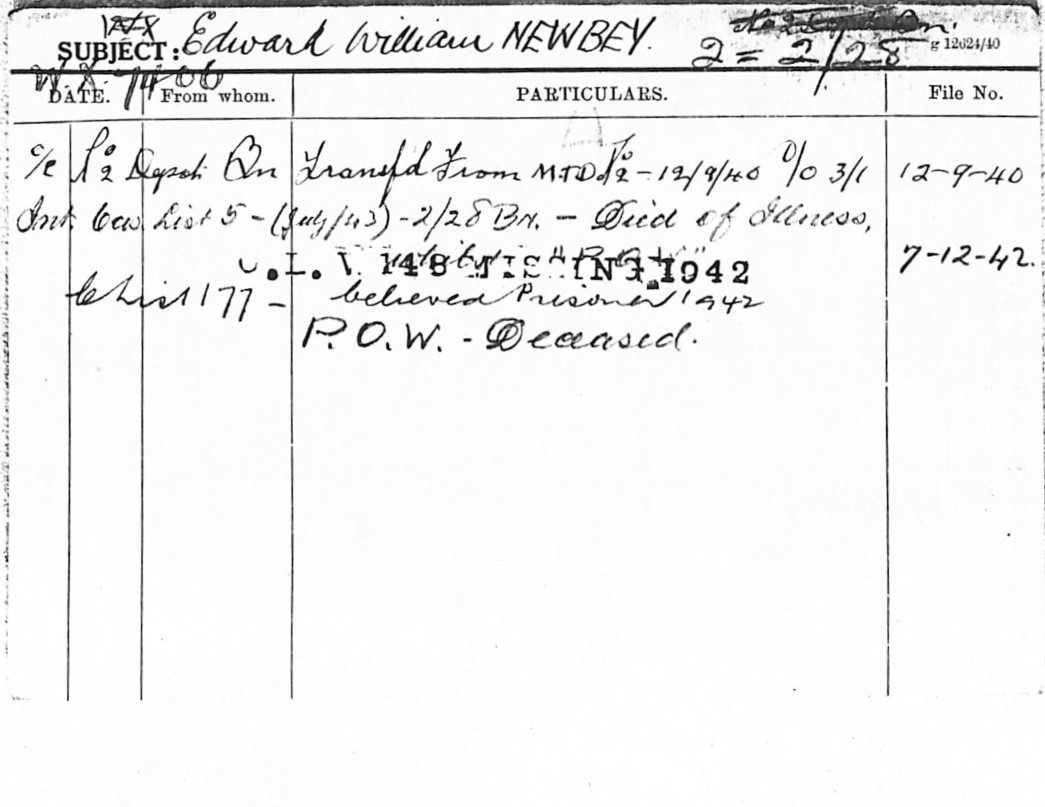 SUBJECT: Edward William NEWBEY. 2= 2/28 g 12624/40
W.X. 7406
DATE. From whom. PARTICULARS. File No.
c/e No 2 Depot Bn Transf'd From M.T.D. No 2 - 12/9/40 D/O 3/1 12-9-40
Cas List 5 - (July/43) - 2/28 Bn. - Died of Illness,
7-12-42.
C.L. V. 148 MISSING 1942
C List 177 - believed Prisoner 1942
P.O.W. - Deceased.